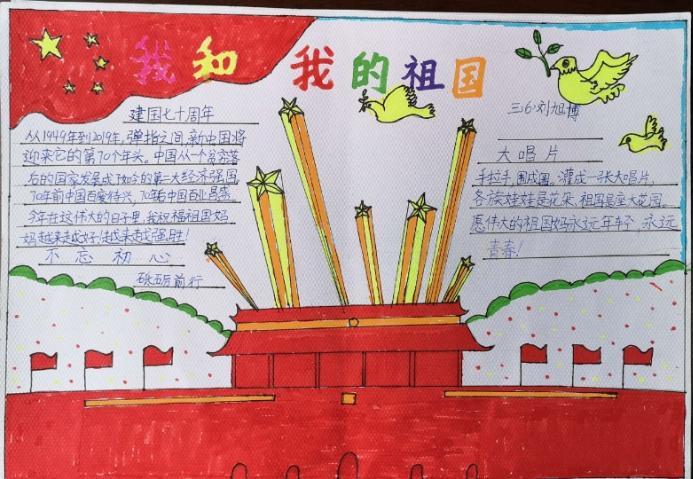 我和我的祖国
三(6)刘旭博
建国七十周年
从1949年到2019年,弹指之间,新中国将
迎来它的第70个年头。中国从一个贫穷落
后的国家发展成了如今的第二大经济强国,
70年前中国百废待兴,70年后中国百业昌泰。
今年在这伟大的日子里,我祝福祖国妈
妈越来越好!越来越强胜!
不忘初心
砥砺前行
大唱片
手拉手,围成圈。灌成一张大唱片,
各族娃娃是花朵,祖国是座大花园。
愿伟大的祖国妈永远年轻 永远
青春!